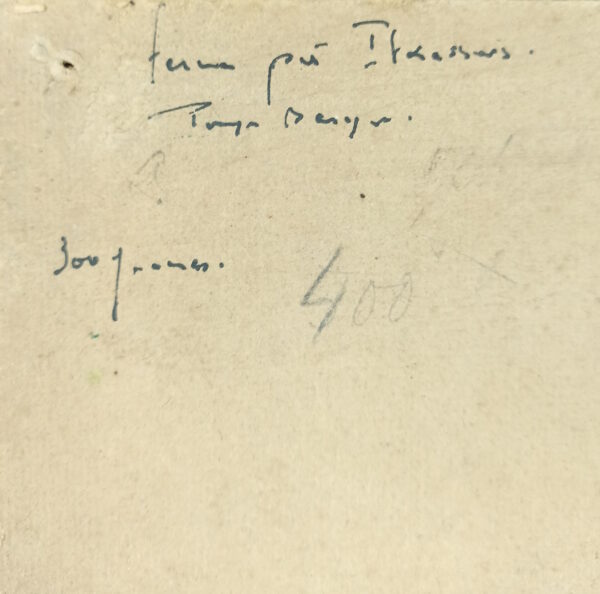 ferme près Itxassous.
Pays Basque.
300 francs.
400